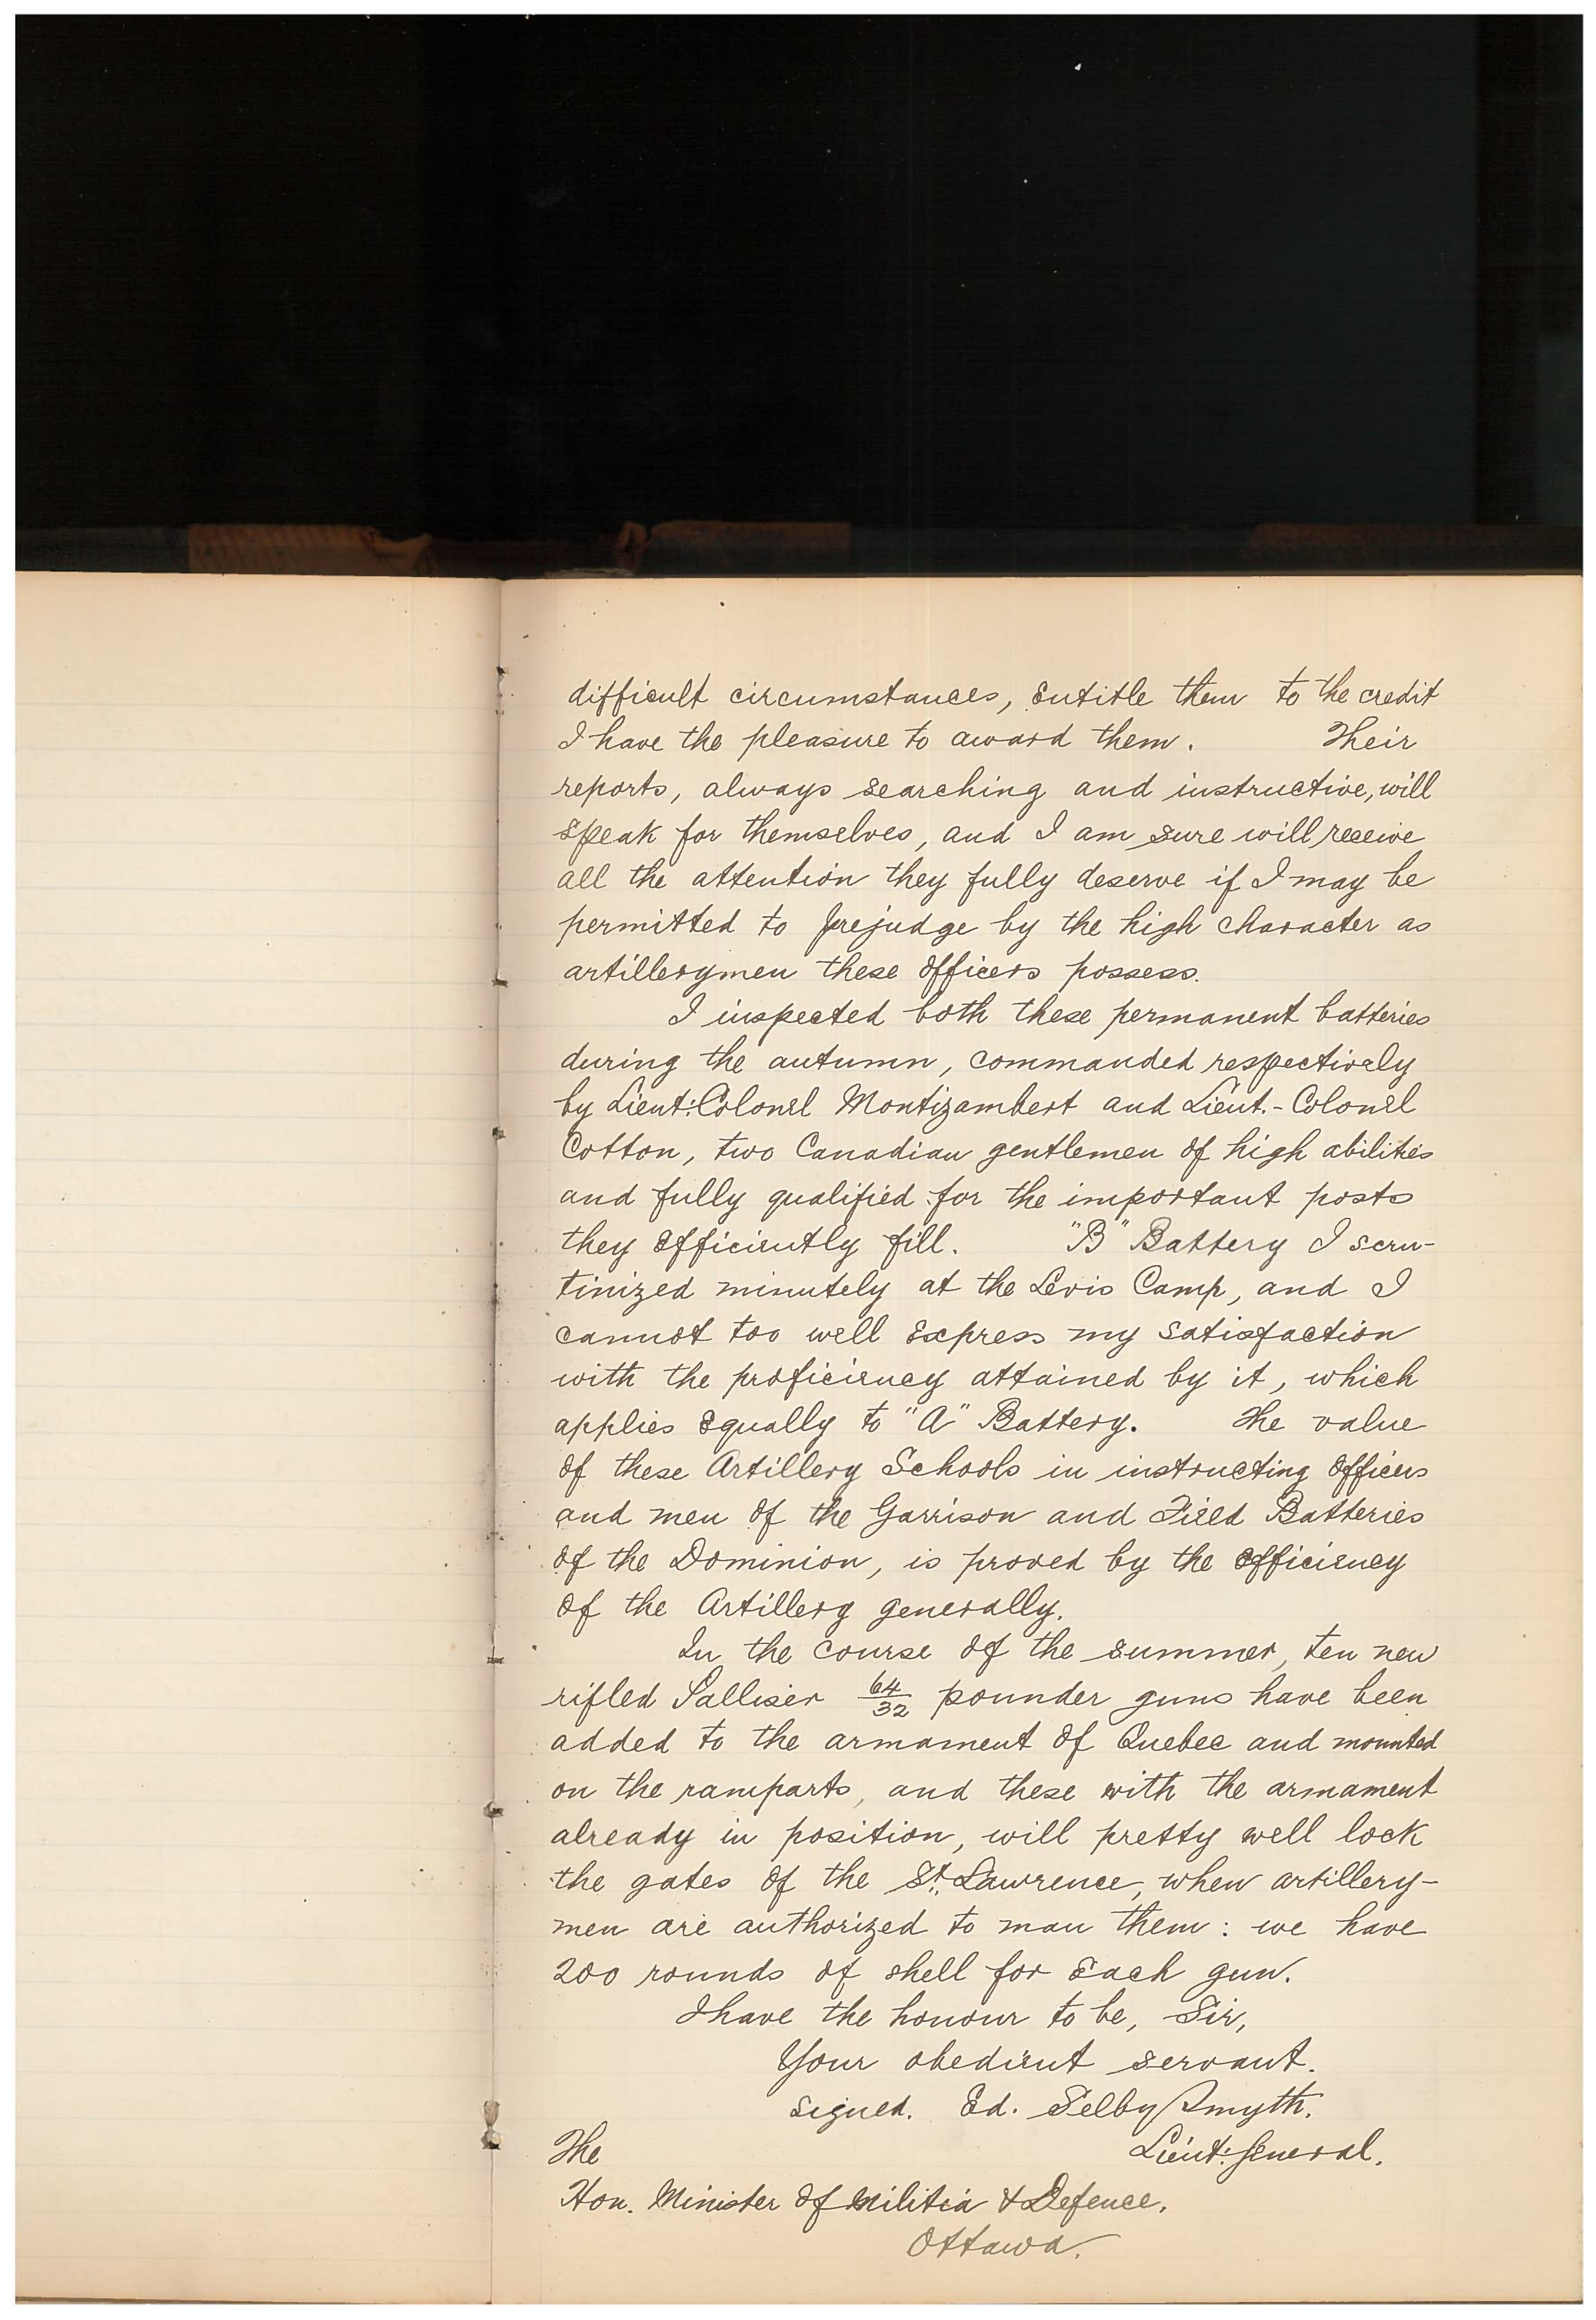 difficult circumstances, entitle them to the credit
I have the pleasure to award them. Their
reports, always searching and instructive, will
speak for themselves, and I am sure will receive
all the attention they fully deserve if I may be
permitted to prejudge by the high character as
artillerymen these officers possess.
I inspected both these permanent batteries
during the autumn, commanded respectively
by Lieut: Colonel Montizambert and Lieut.-Colonel
Cotton, two Canadian gentlemen of high abilities
and fully qualified for the important posts
they efficiently fill. "B" Battery I scru-
tinized minutely at the Levis Camp, and I
cannot too well express my satisfaction
with the proficiency attained by it, which
applies equally to "A" Battery. The value
of these Artillery Schools in instructing officers
and men of the Garrison and Field Batteries
of the Dominion, is proved by the efficiency
of the Artillery generally.
In the course of the summer, ten new
rifled Palliser 64/32 pounder guns have been
added to the armament of Quebec and mounted
on the ramparts, and these with the armament
already in position, will pretty well lock
the gates of the St. Lawrence, when artillery-
men are authorized to man them: we have
200 rounds of shell for each gun.
I have the honour to be, Sir,
Your obedient servant.
signed. Ed. Selby Smyth.
The Lieut: General.
Hon. Minister of Militia & Defence,
Ottawa.